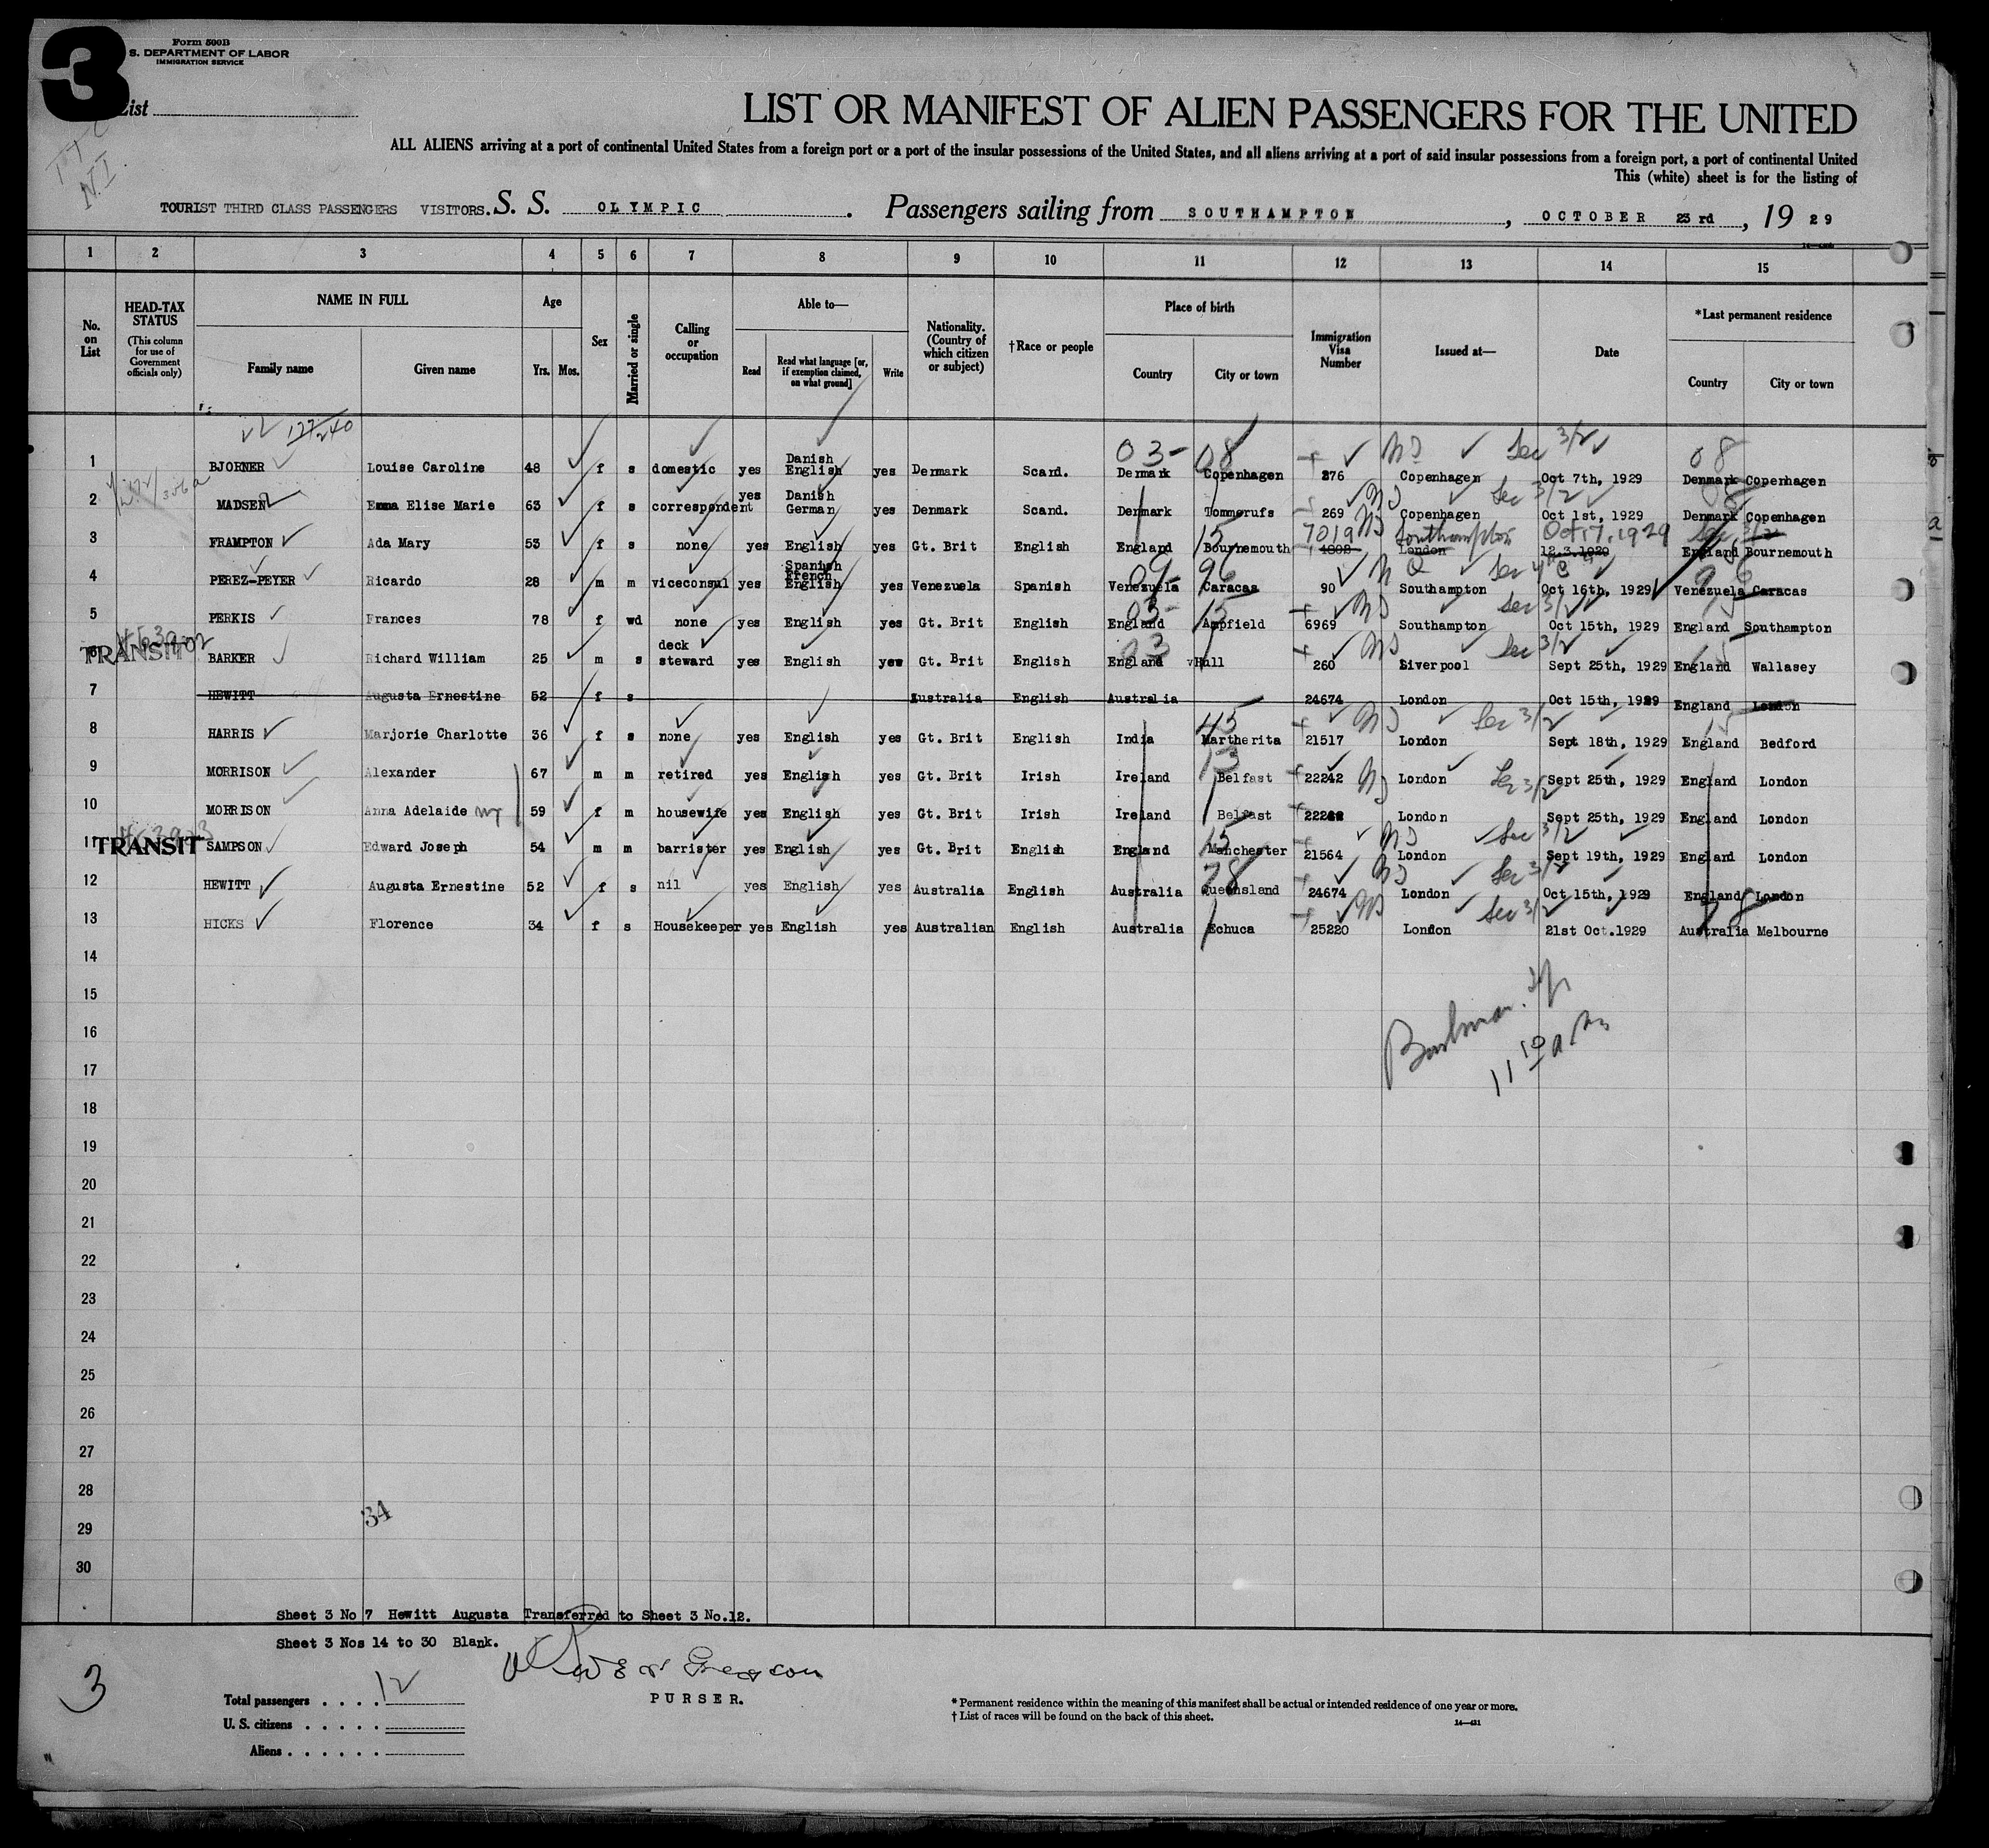 3
Form 500B
S. DEPARTMENT OF LABOR
IMMIGRATION SERVICE
List
LIST OR MANIFEST OF ALIEN PASSENGERS FOR THE UNITED
ALL ALIENS arriving at a port of continental United States from a foreign port or a port of the insular possessions of the United States, and all aliens arriving at a port of said insular possessions from a foreign port, a port of continental United
This (white) sheet is for the listing of
TOURIST THIRD CLASS PASSENGERS VISITORS. S. S. OLYMPIC . Passengers sailing from SOUTHAMPTON , OCTOBER 23 rd , 19 29
1 2 3 4 5 6 7 8 9 10 11 12 13 14 15
No. on List
HEAD-TAX STATUS (This column for use of Government officials only)
NAME IN FULL
Family name Given name
Age
Yrs. Mos.
Sex
Married or single
Calling or occupation
Able to—
Read Read what language [or, if exemption claimed, on what ground] Write
Nationality. (Country of which citizen or subject)
†Race or people
Place of birth
Country City or town
Immigration Visa Number
Issued at—
Date
*Last permanent residence
Country City or town
03- 08 Sec 3/2 08
1 BJORNER Louise Caroline 48 f s domestic yes Danish English yes Denmark Scand. Denmark Copenhagen 276 Copenhagen Oct 7th, 1929 Denmark Copenhagen
2 MADSEN Emma Elise Marie 63 f s correspondent yes Danish German yes Denmark Scand. Denmark Tommerufs 269 Copenhagen Oct 1st, 1929 Denmark Copenhagen
15 7019 Southampton Oct 17, 1929
3 FRAMPTON Ada Mary 53 f s none yes English yes Gt. Brit English England Bournemouth London 12.3.1929 England Bournemouth
4 PEREZ-PEYER Ricardo 28 m m viceconsul yes Spanish French English yes Venezuela Spanish Venezuela Caracas 90 Southampton Oct 16th, 1929 Venezuela Caracas
5 PERKIS Frances 78 f wd none yes English yes Gt. Brit English England Ampfield 6969 Southampton Oct 15th, 1929 England Southampton
TRANSIT
6 BARKER Richard William 25 m s deck steward yes English yes Gt. Brit English England Hull 260 Liverpool Sept 25th, 1929 England Wallasey
7 HEWITT Augusta Ernestine 52 f s Australia English Australia 24674 London Oct 15th, 1929 England London
8 HARRIS Marjorie Charlotte 36 f s none yes English yes Gt. Brit English India Martherita 21517 London Sept 18th, 1929 England Bedford
9 MORRISON Alexander 67 m m retired yes English yes Gt. Brit Irish Ireland Belfast 22242 London Sept 25th, 1929 England London
10 MORRISON Anna Adelaide 59 f m housewife yes English yes Gt. Brit Irish Ireland Belfast London Sept 25th, 1929 England London
TRANSIT
11 SAMPSON Edward Joseph 54 m m barrister yes English yes Gt. Brit English England Manchester 21564 London Sept 19th, 1929 England London
12 HEWITT Augusta Ernestine 52 f s nil yes English yes Australia English Australia Queensland 24674 London Oct 15th, 1929 England London
13 HICKS Florence 34 f s Housekeeper yes English yes Australian English Australia Echuca 25220 London 21st Oct.1929 Australia Melbourne
14
15
16
17
18
19
20
21
22
23
24
25
26
27
28
29
30
11 10 am
34
Sheet 3 No 7 Hewitt Augusta Transferred to Sheet 3 No.12.
Sheet 3 Nos 14 to 30 Blank.
3
PURSER.
Total passengers . . . . 12
U. S. citizens . . . . .
Aliens . . . . . .
* Permanent residence within the meaning of this manifest shall be actual or intended residence of one year or more.
† List of races will be found on the back of this sheet.
14—431